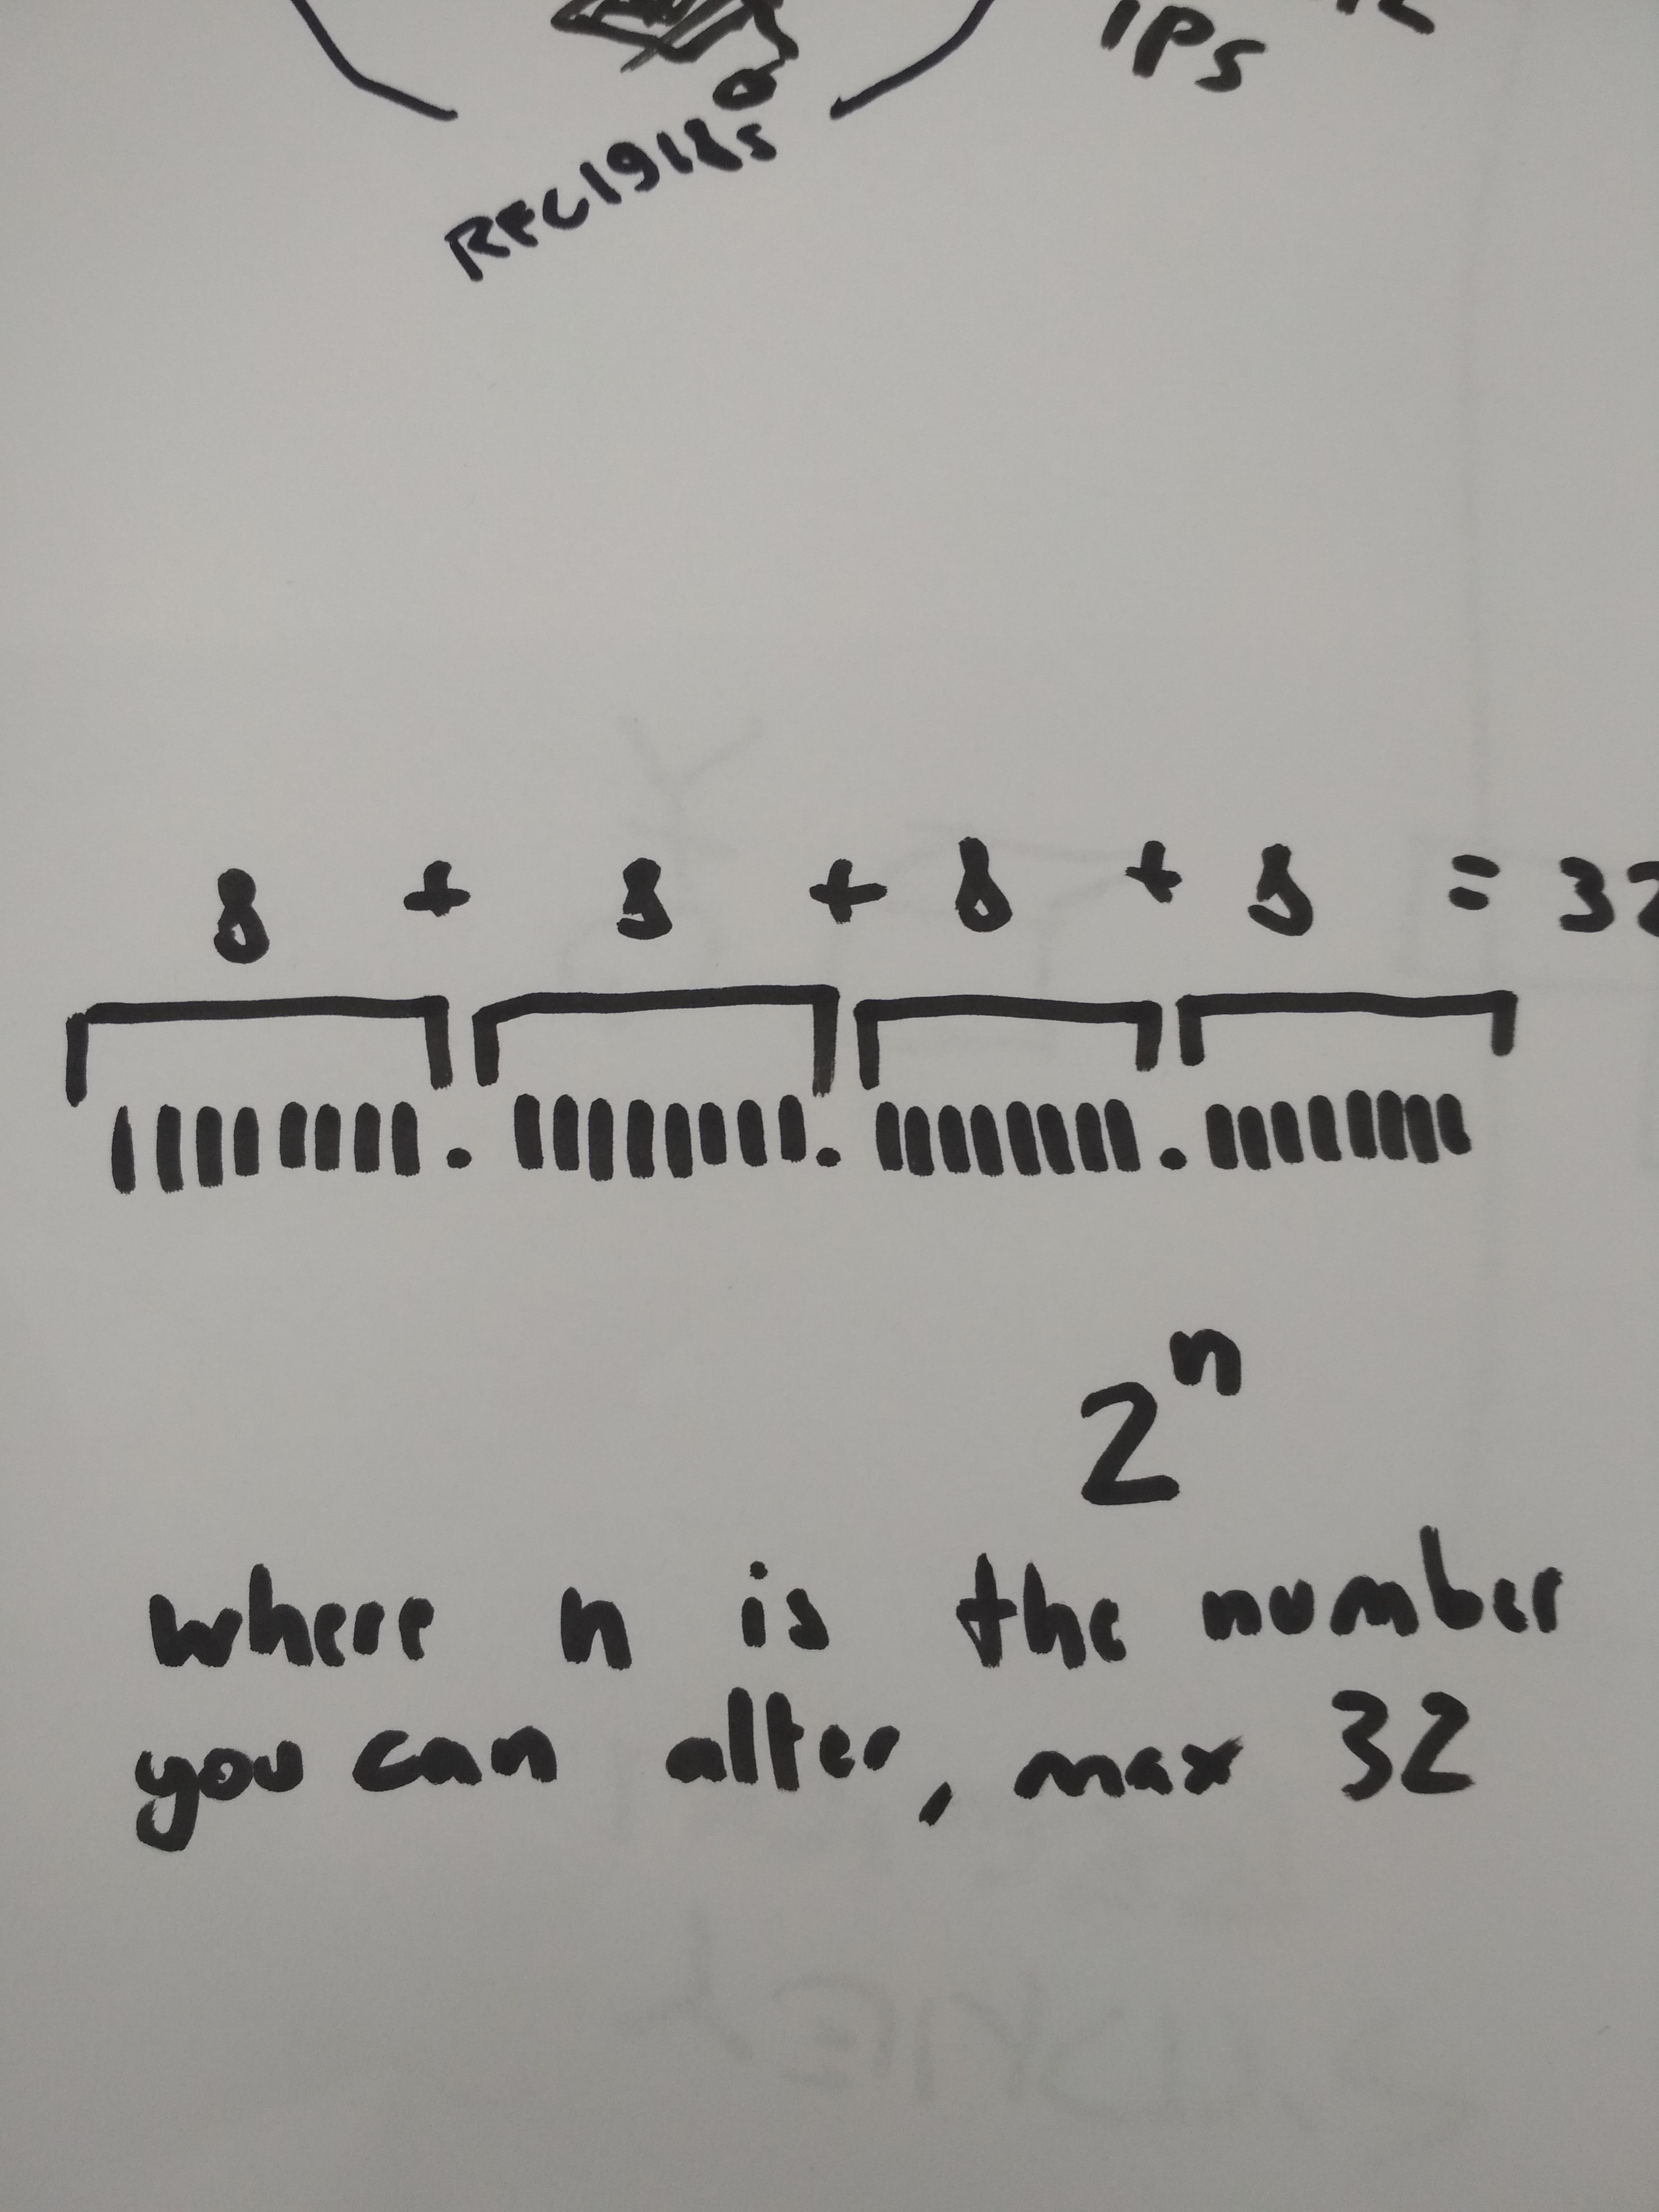 IPs
RFC1918s
8 + 8 + 8 + 8 = 32
11111111.11111111.11111111.11111111
2ⁿ
where n is the number
you can alter, max 32